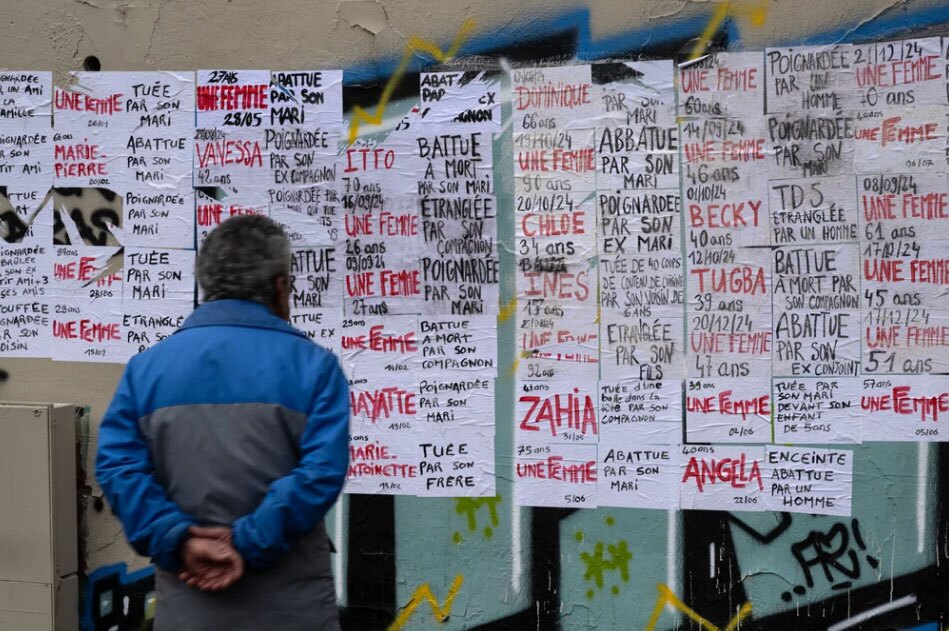 POIGNARDÉE
PAR UN AMI
DE LA
FAMILLE
UNE FEMME
20/01
TUÉE
PAR SON
MARI
27 ANS
UNE FEMME
28/05
ABATTUE
PAR SON
MARI
POIGNARDÉE
PAR SON
PETIT AMI
66 ans
MARIE-
PIERRE
20/01
ABATTUE
PAR SON
MARI
VANESSA
42 ans
POIGNARDÉE
PAR SON
EX COMPAGNON
TUÉE
PAR SON
PETIT AMI
POIGNARDÉE
PAR SON
MARI
UNE FEMME
POIGNARDÉE
39 ans
UNE FEMME
28/01
TUÉE
PAR SON
MARI
28 ans
UNE FEMME
15/01
ÉTRANGLÉE
PAR SON
MARI
ABATTUE
PAR SON
EX
ITTO
70 ans
BATTUE
À MORT
PAR SON MARI
16/09/24
UNE FEMME
26 ans
ÉTRANGLÉE
PAR SON
COMPAGNON
09/09/24
UNE FEMME
27 ans
POIGNARDÉE
PAR SON
MARI
29 ans
UNE FEMME
14/02
BATTUE
À MORT
PAR SON
COMPAGNON
HAYATTE
POIGNARDÉE
PAR SON
MARI
MARIE-
ANTOINETTE
15/02
TUÉE
PAR SON
FRÈRE
DOMINIQUE
66 ans
PAR SON
MARI
UNE FEMME
60 ans
POIGNARDÉE
PAR UN
HOMME
2/12/24
UNE FEMME
70 ans
19/10/24
UNE FEMME
90 ans
ABBATUE
PAR SON
MARI
14/09/24
UNE FEMME
46 ans
POIGNARDÉE
PAR SON
MARI
UNE FEMME
06/02
20/10/24
CHLOE
34 ans
POIGNARDÉE
PAR SON
EX MARI
9/10/24
BECKY
40 ans
TDS
ÉTRANGLÉE
PAR UN HOMME
08/09/24
UNE FEMME
61 ans
INES
TUÉE DE 40 COUPS
DE COUTEAU DE CUISINE
PAR SON VOISIN DE
12/10/24
TUGBA
39 ans
BATTUE
À MORT PAR
SON COMPAGNON
17/12/24
UNE FEMME
45 ans
UNE FEMME
92 ans
ÉTRANGLÉE
PAR SON
FILS
20/12/24
UNE FEMME
47 ans
ABATTUE
PAR SON
EX CONJOINT
17/12/24
UNE FEMME
51 ans
41 ans
ZAHIA
31/05
TUÉE d'une
balle dans la
tête PAR SON
COMPAGNON
39 ans
UNE FEMME
02/06
TUÉE PAR
SON MARI
DEVANT SON
ENFANT
DE 5 ANS
57 ans
UNE FEMME
05/06
75 ans
UNE FEMME
5/06
ABATTUE
PAR SON
MARI
40 ans
ANGELA
22/06
ENCEINTE
ABATTUE
PAR UN
HOMME